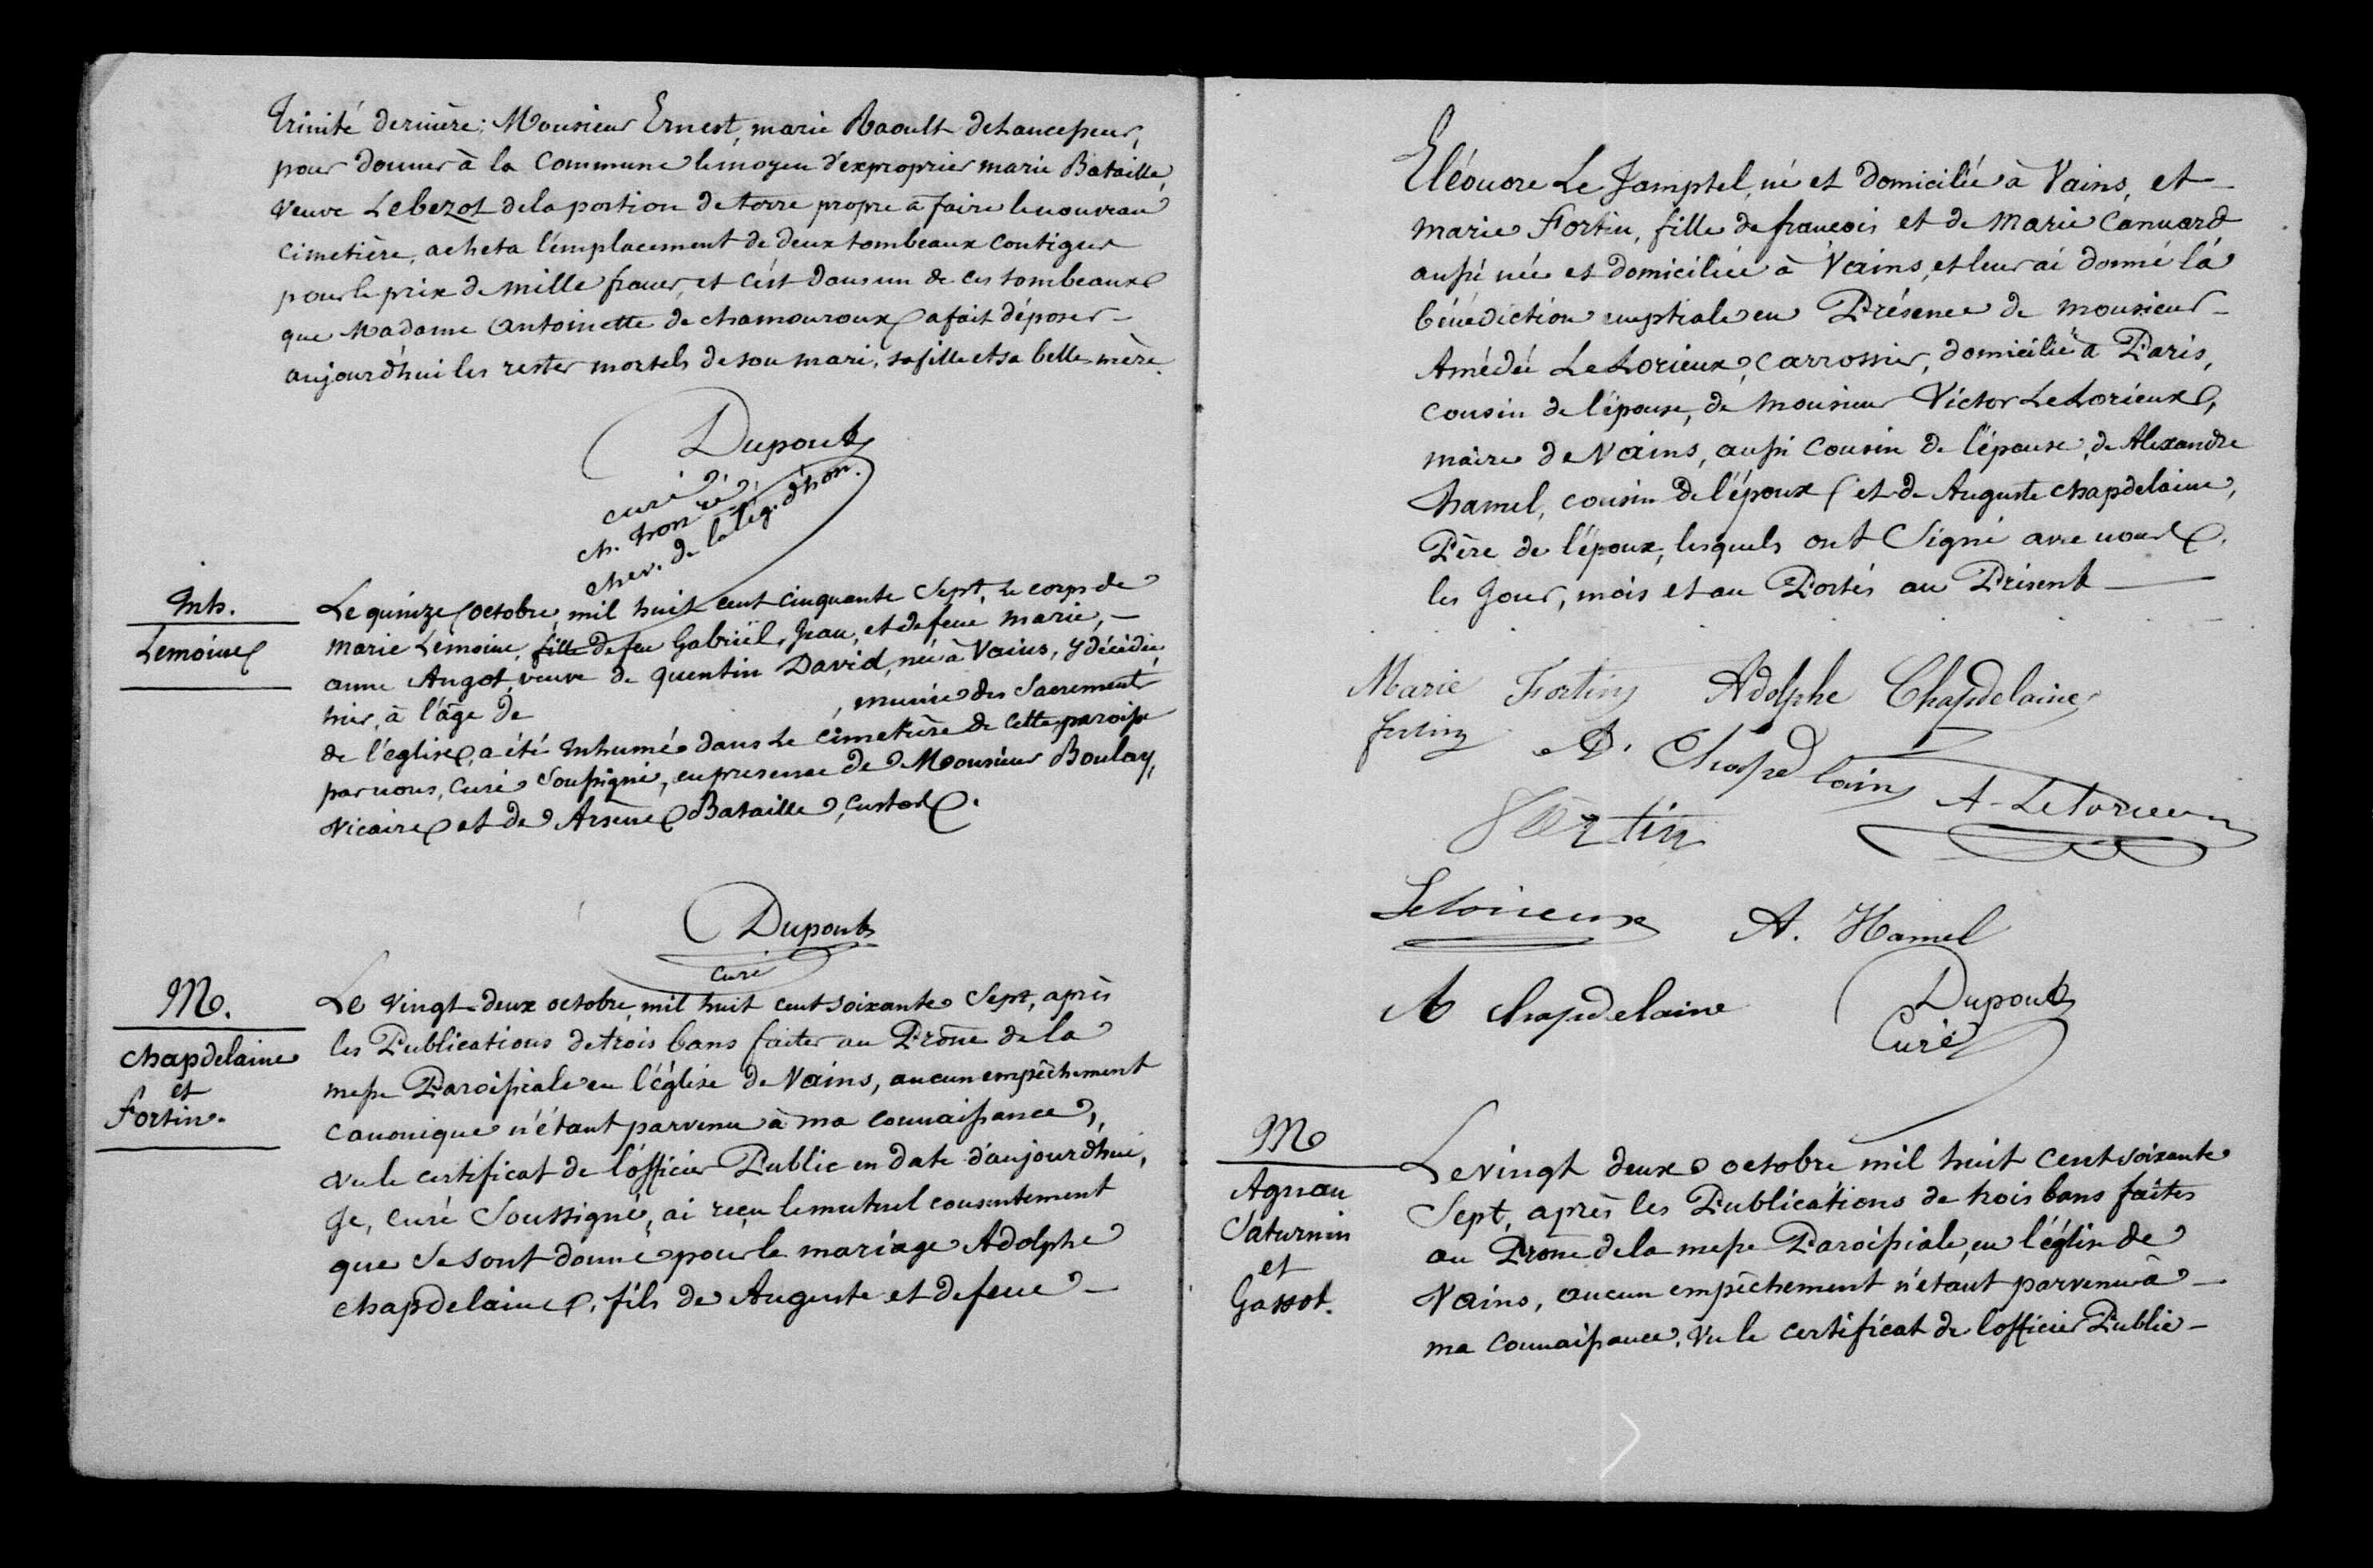 Trinité dernière; Monsieur Ernest, marie Raoult de Lancesseur,
pour donner à la Commune le moyen d'exproprier marie Bataille,
veuve Lebezot de la portion de terre propre à faire le nouveau
cimetière, acheta l'emplacement de deux tombeaux contigus
pour le prix de mille francs, et c'est dans un de ces tombeaux
que Madame Antoinette de chamouroux a fait déposer
aujourd'hui les restes mortels de son mari, sa fille et sa belle-mère.
Dupont
curé
ch. honre
chev. de la lég. d'hon.
Inh.
Lemoine
Le quinze octobre, mil huit cent cinquante Sept, le corps de
Marie Lemoine, fille de feu Gabriël, Jean, et de feue marie,
anne Angot, veuve de quentin David, née à Vains, y décédée
hier, à l'âge de , munie des Sacrements
de l'église, a été Inhumé dans le cimetière de cette paroisse
par nous, Curé Soussigné, en présence de Monsieur Boulay,
Vicaire et de Arsène Bataille, custos.
Dupont
curé
M.
chapdelaine
et
fortin.
Le vingt-deux octobre, mil huit cent soixante Sept, après
les Publications de trois bans faites au Prône de la
messe Paroissiale en l'église de Vains, aucun empêchement
canonique n'étant parvenu à ma connaissance,
vu le certificat de l'officier Public en date d'aujourd'hui,
Je, Curé Soussigné, ai reçu le mutuel consentement
que Se sont donné pour le mariage Adolphe
chapdelaine, fils de Auguste et de feue
Eléonore Le Jamptel, né et domicilié à Vains, et
marie Fortin, fille de françois et de Marie Canuard
aussi née et domiciliée à Vains, et leur ai donné la
bénédiction nuptiale en Présence de monsieur
Amédée Le Lorieux, carrossier, domicilié à Paris,
cousin de l'épouse, de monsieur Victor Le Lorieux,
maire de Vains, aussi cousin de l'épouse, de Alexandre
hamel, cousin de l'époux et de Auguste chapdelaine,
Père de l'époux, lesquels ont Signé avec nous
les Jour, mois et an Portés au Présent
Marie Fortin Adolphe Chapdelaine
fortin
Chapdelain A. Lelorieux
Fortin
Lelorieux A. Hamel
A chapdelaine Dupont
Curé
M
Agnau
Saturnin
et
Gassot.
Le vingt deux octobre mil huit cent soixante
Sept, après les Publications de trois bans faites
au Prône de la messe Paroissiale, en l'église de
Vains, aucun empêchement n'étant parvenu à
ma connaissance, Vu le certificat de l'officier Public